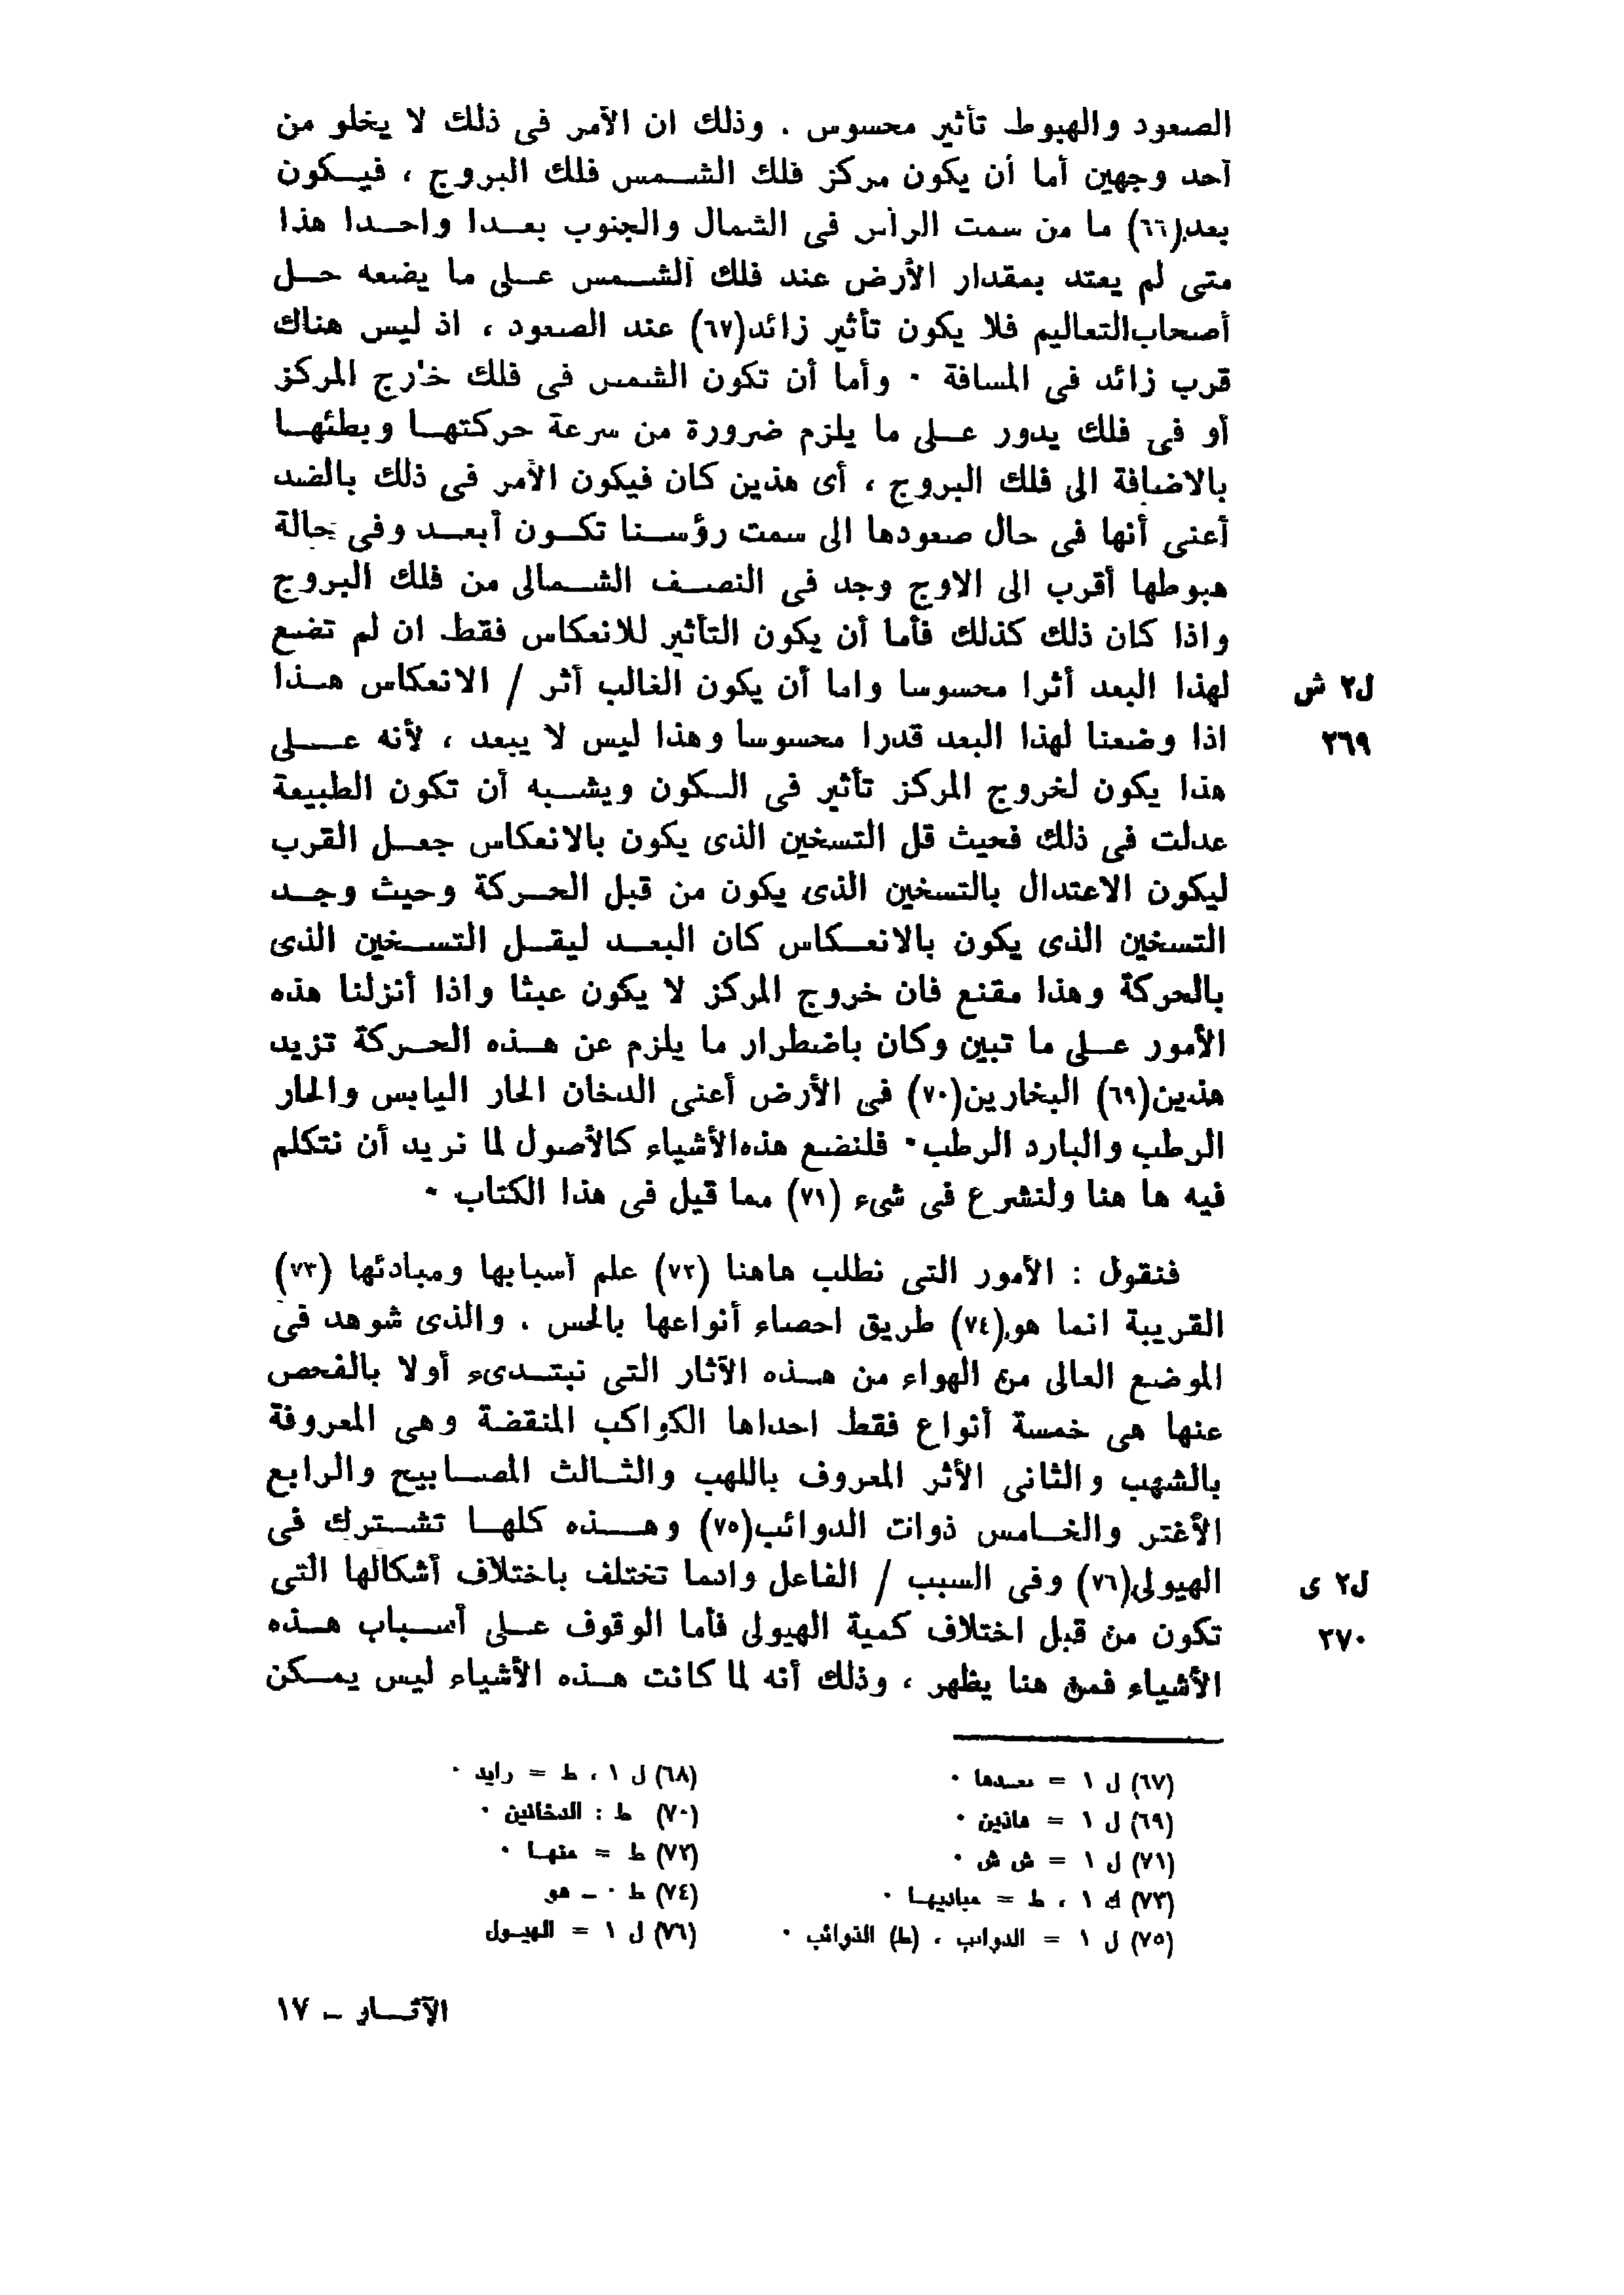 الصعود والهبوط تأثير محسوس . وذلك ان الأمر فى ذلك لا يخلو من
أحد وجهين أما أن يكون مركز فلك الشمس فلك البروج ، فيكون
بعد(٦٦) ما من سمت الرأس فى الشمال والجنوب بعدا واحدا هذا
متى لم يعتد بمقدار الأرض عند فلك الشمس على ما يضعه حل
أصحاب التعاليم فلا يكون تأثير زائد(٦٧) عند الصعود ، اذ ليس هناك
قرب زائد فى المسافة . وأما أن تكون الشمس فى فلك خارج المركز
أو فى فلك يدور على ما يلزم ضرورة من سرعة حركتها وبطئها
بالاضافة الى فلك البروج ، أى هذين كان فيكون الأمر فى ذلك بالضد
أعنى أنها فى حال صعودها الى سمت رؤسنا تكون أبعد وفى حالة
هبوطها أقرب الى الاوج وجد فى النصف الشمالى من فلك البروج
واذا كان ذلك كذلك فأما أن يكون التأثير للانعكاس فقط ان لم تضع
لهذا البعد أثرا محسوسا واما أن يكون الغالب أثر / الانعكاس هذا
ل٢ ش
اذا وضعنا لهذا البعد قدرا محسوسا وهذا ليس لا يبعد ، لأنه على
٢٦٩
هذا يكون لخروج المركز تأثير فى الكون ويشبه أن تكون الطبيعة
عدلت فى ذلك فحيث قل التسخين الذى يكون بالانعكاس جعل القرب
ليكون الاعتدال بالتسخين الذى يكون من قبل الحركة وحيث وجد
التسخين الذى يكون بالانعكاس كان البعد ليقل التسخين الذى
بالحركة وهذا مقنع فان خروج المركز لا يكون عبثا واذا أنزلنا هذه
الأمور على ما تبين وكان باضطرار ما يلزم عن هذه الحركة تزيد
هذين(٦٩) البخارين(٧٠) فى الأرض أعنى الدخان الحار اليابس والحار
الرطب والبارد الرطب . فلنضع هذه الأشياء كالأصول لما نريد أن نتكلم
فيه ها هنا ولنشرع فى شىء (٧١) مما قيل فى هذا الكتاب .
فنقول : الأمور التى نطلب هاهنا (٧٢) علم أسبابها ومبادئها (٧٣)
القريبة انما هو(٧٤) طريق احصاء أنواعها بالحس . والذى شوهد فى
الموضع العالى من الهواء من هذه الآثار التى نبتدىء أولا بالفحص
عنها هى خمسة أنواع فقط احداها الكواكب المنقضة وهى المعروفة
بالشهب والثانى الأثر المعروف باللهب والثالث المصابيح والرابع
الأغتر والخامس ذوات الدوائب(٧٥) وهذه كلها تشترك فى
الهيولى(٧٦) وفى السبب / الفاعل وانما تختلف باختلاف أشكالها التى
ل٢ ى
تكون من قبل اختلاف كمية الهيولى فأما الوقوف على أسباب هذه
٢٧٠
الأشياء فمن هنا يظهر ، وذلك أنه لما كانت هذه الأشياء ليس يمكن
(٦٧) ل ١ = بعدها .
(٦٨) ل ١ ، ط = رايد .
(٦٩) ل ١ = هاذين .
(٧٠) ط : الدخانين .
(٧١) ل ١ = ش ش .
(٧٢) ط = منها .
(٧٣) ك ١ ، ط = مباديها .
(٧٤) ط . ـ هو
(٧٥) ل ١ = الدوايب ، (ط) الذوائب .
(٧٦) ل ١ = الهيول
الآثار ـ ١٧